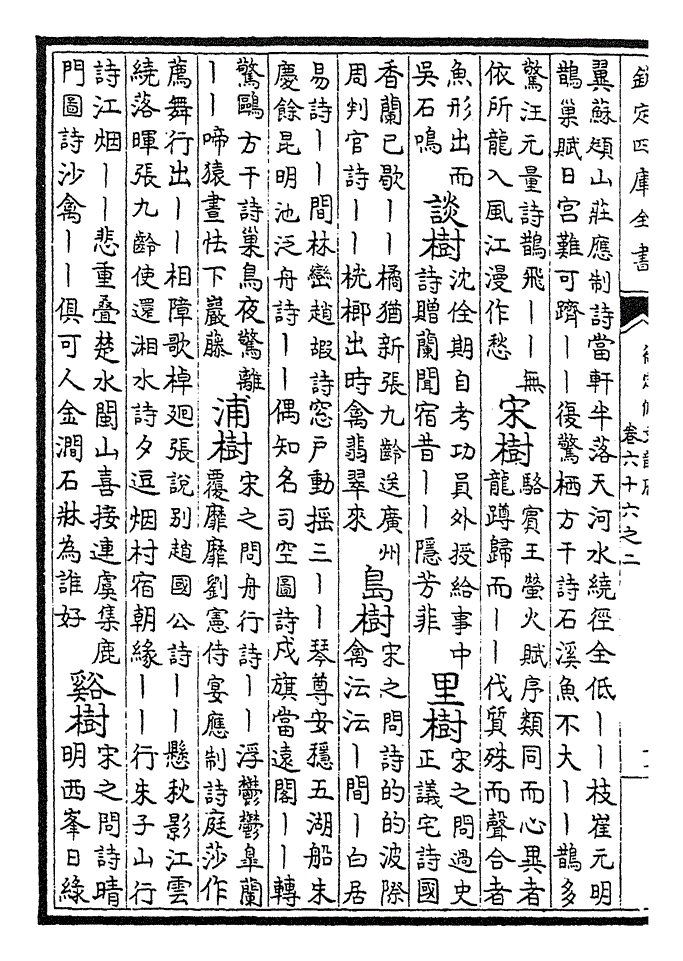 欽定四庫全書
卷六十六之二
翼蘇頲山莊應制詩當軒半落天河水繞徑全低丨丨枝崔元明
鵲巢賦日宮難可躋丨丨復驚栖方干詩石溪魚不大丨丨鵲多
驚汪元量詩鵲飛丨丨無
依所龍入風江漫作愁
宋樹
駱賓王螢火賦序類同而心異者
龍蹲歸而丨丨伐質殊而聲合者
魚形出而
吳石鳴
談樹
沈佺期自考功員外授給事中
詩贈蘭聞宿昔丨丨隱芳菲
里樹
宋之問過史
正議宅詩國
香蘭已歇丨丨橘猶新張九齡送廣州
周判官詩丨丨桄榔出時禽翡翠來
島樹
宋之問詩的的波際
禽沄沄丨間丨白居
易詩丨丨間林巒趙嘏詩窓戶動摇三丨丨琴尊安穩五湖船朱
慶餘昆明池泛舟詩丨丨偶知名司空圖詩戍旗當遠閣丨丨轉
驚鷗方干詩巢鳥夜驚離
丨丨啼猿晝怯下巖藤
浦樹
宋之問舟行詩丨丨浮鬱鬱臯蘭
覆靡靡劉憲侍宴應制詩庭莎作
薦舞行出丨丨相障歌棹廻張說別趙國公詩丨丨懸秋影江雲
繞落暉張九齡使還湘水詩夕逗烟村宿朝緣丨丨行朱子山行
詩江烟丨丨悲重疊楚水閩山喜接連虞集鹿
門圖詩沙禽丨丨俱可人金澗石牀為誰好
谿樹
宋之問詩晴
明西峯日綠